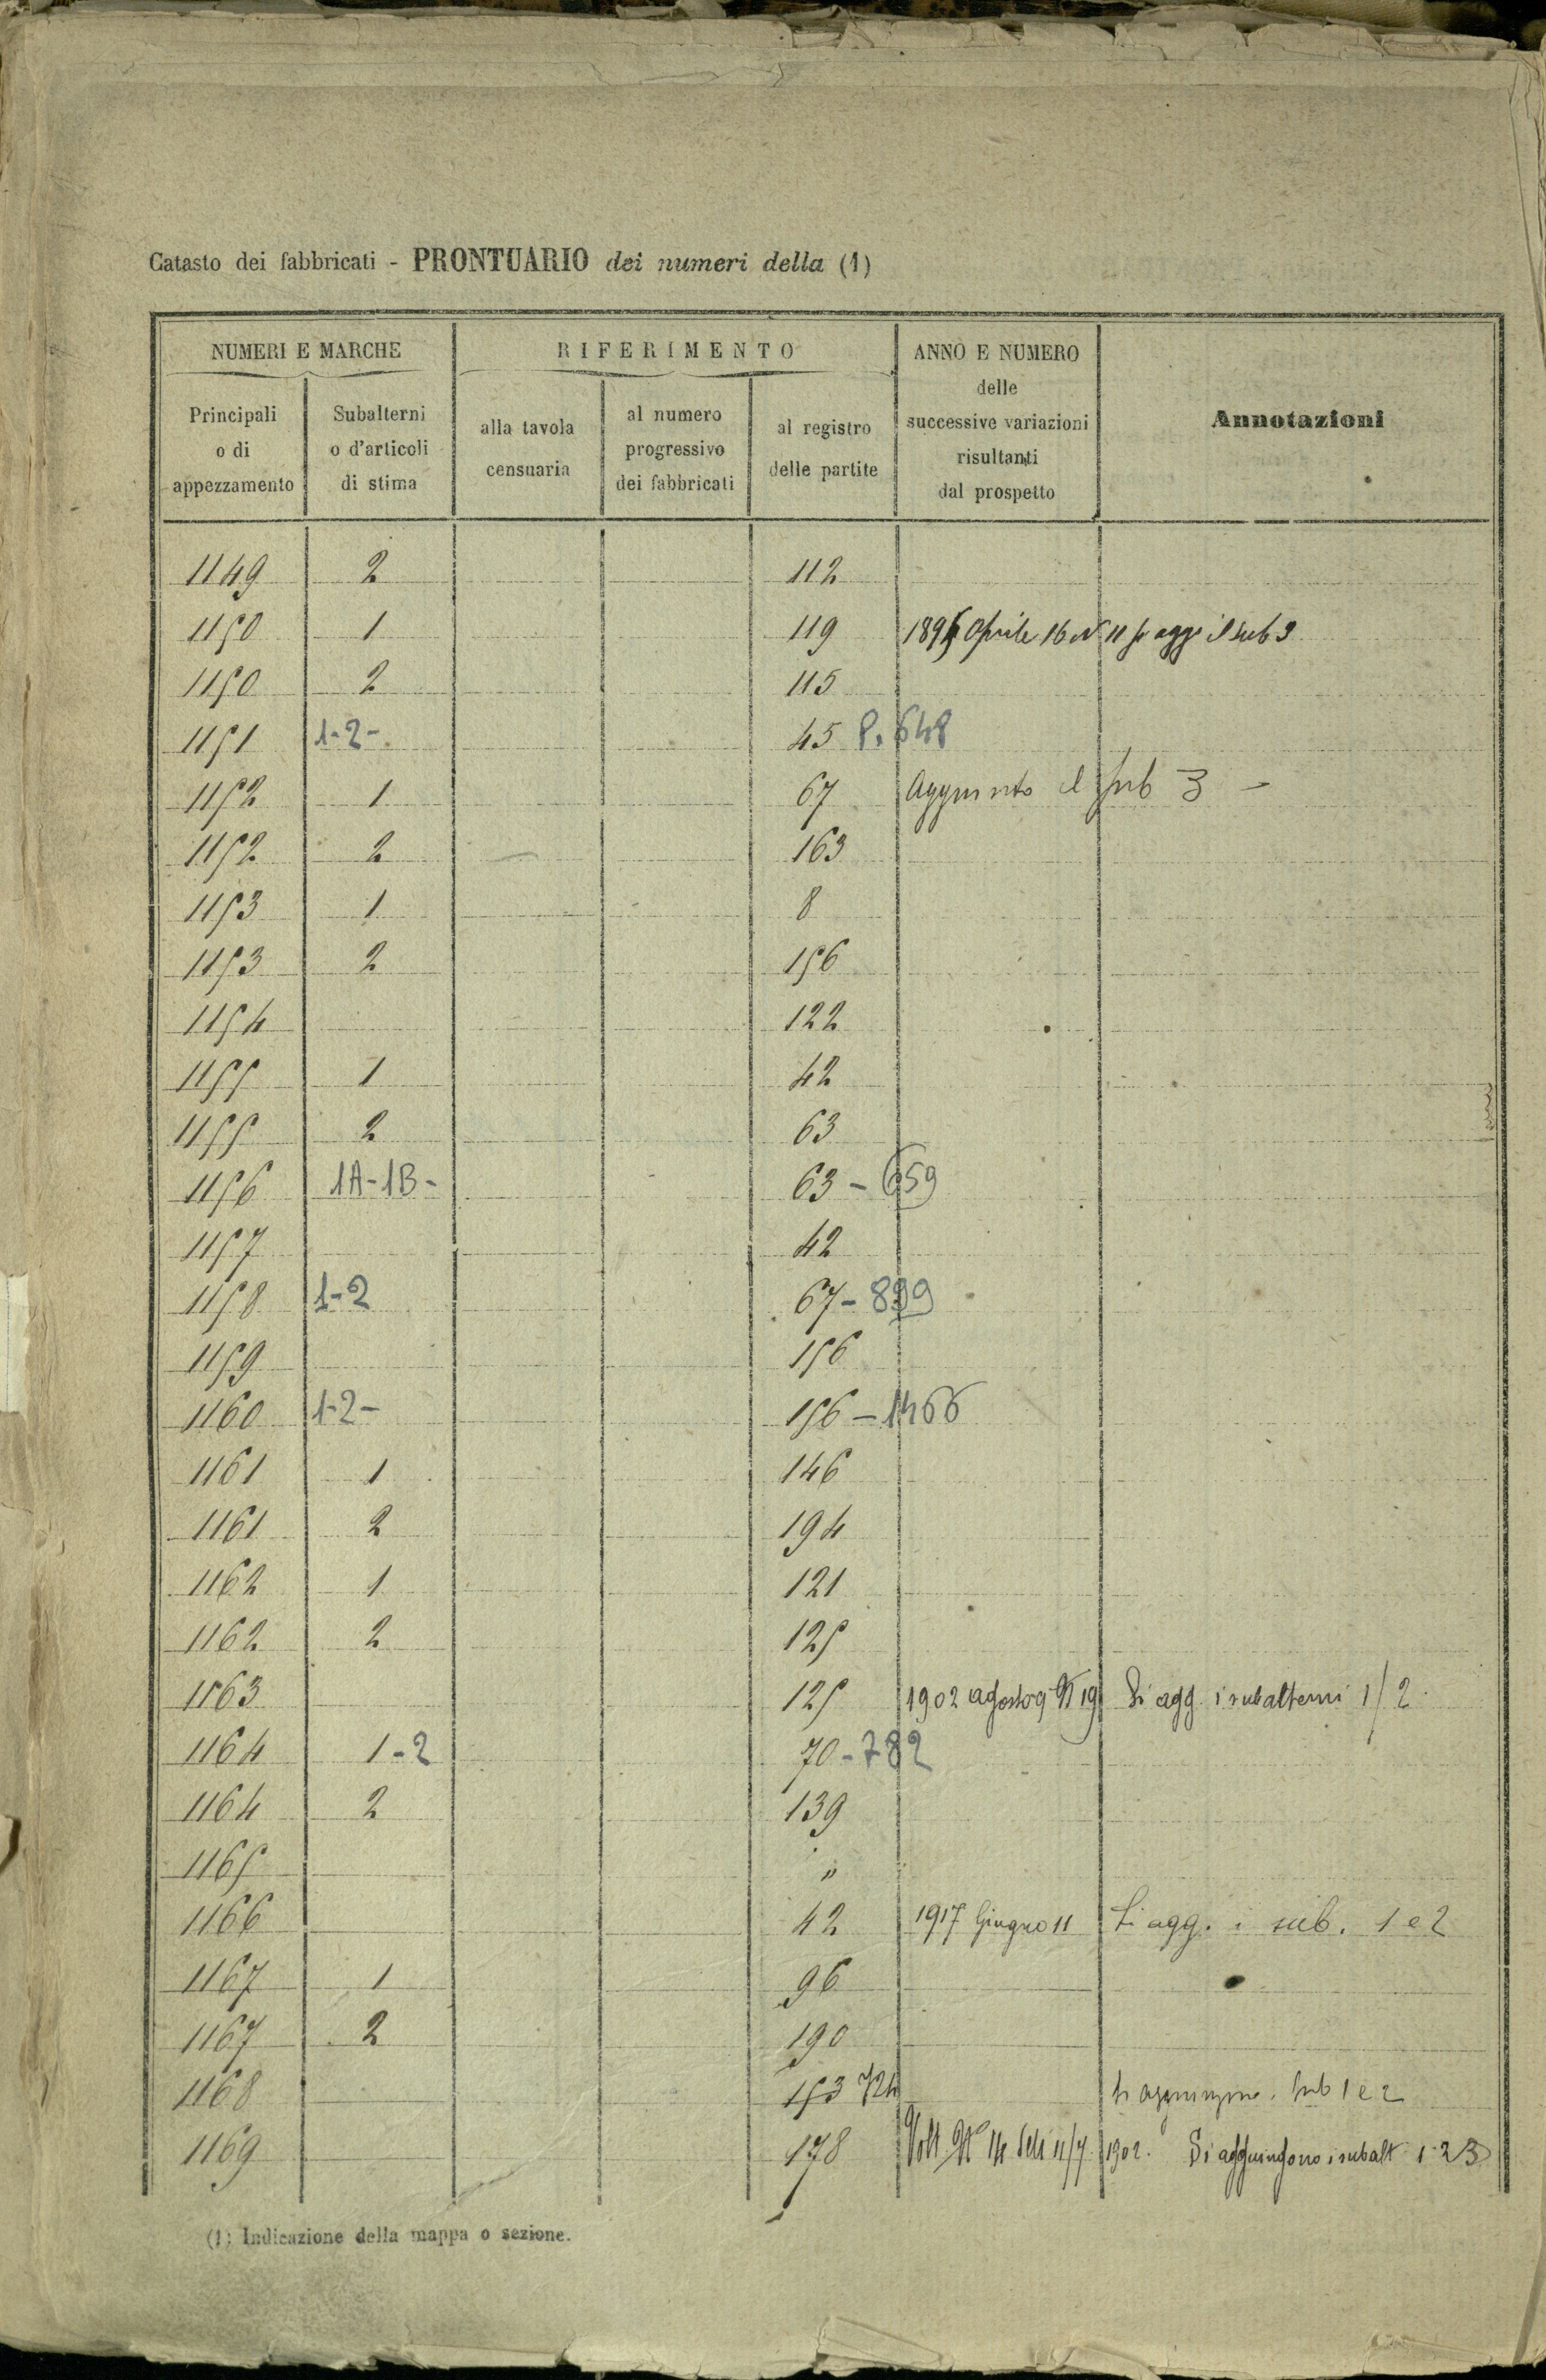 Catasto dei fabbricati - PRONTUARIO dei numeri della (1)
NUMERI E MARCHE
Principali o di appezzamento
Subalterni o d'articoli di stima
RIFERIMENTO
alla tavola censuaria
al numero progressivo dei fabbricati
al registro delle partite
ANNO E NUMERO delle successive variazioni risultanti dal prospetto
Annotazioni
1149 2 112
1150 1 119 Aprile 16 N 11 si agg. il sub 3
1150 2 115
1151 1-2- 45 P. 648
1152 1 67 Aggiunto il sub 3 -
1152 2 163
1153 1 8
1153 2 156
1154 122
1155 1 42
1155 2 63
1156 1A-1B- 63 - 659
1157 42
1158 1-2 67 - 899
1159 156
1160 1-2- 156 - 1466
1161 1 146
1161 2 194
1162 1 121
1162 2 125
1163 125 1902 agosto 9 N 19 Si agg. i subalterni 1/2
1164 1-2 70 - 782
1164 2 139
1165 "
1166 42 1917 Giugno 11 Si agg. i sub. 1 e 2
1167 1 96
1167 2 190
1168 153 724 Si aggiungono i sub 1 e 2
1169 178 Volt. N° 14 11/7 1902. Si aggiungono i subalt. 1 2 3
(1) Indicazione della mappa o sezione.